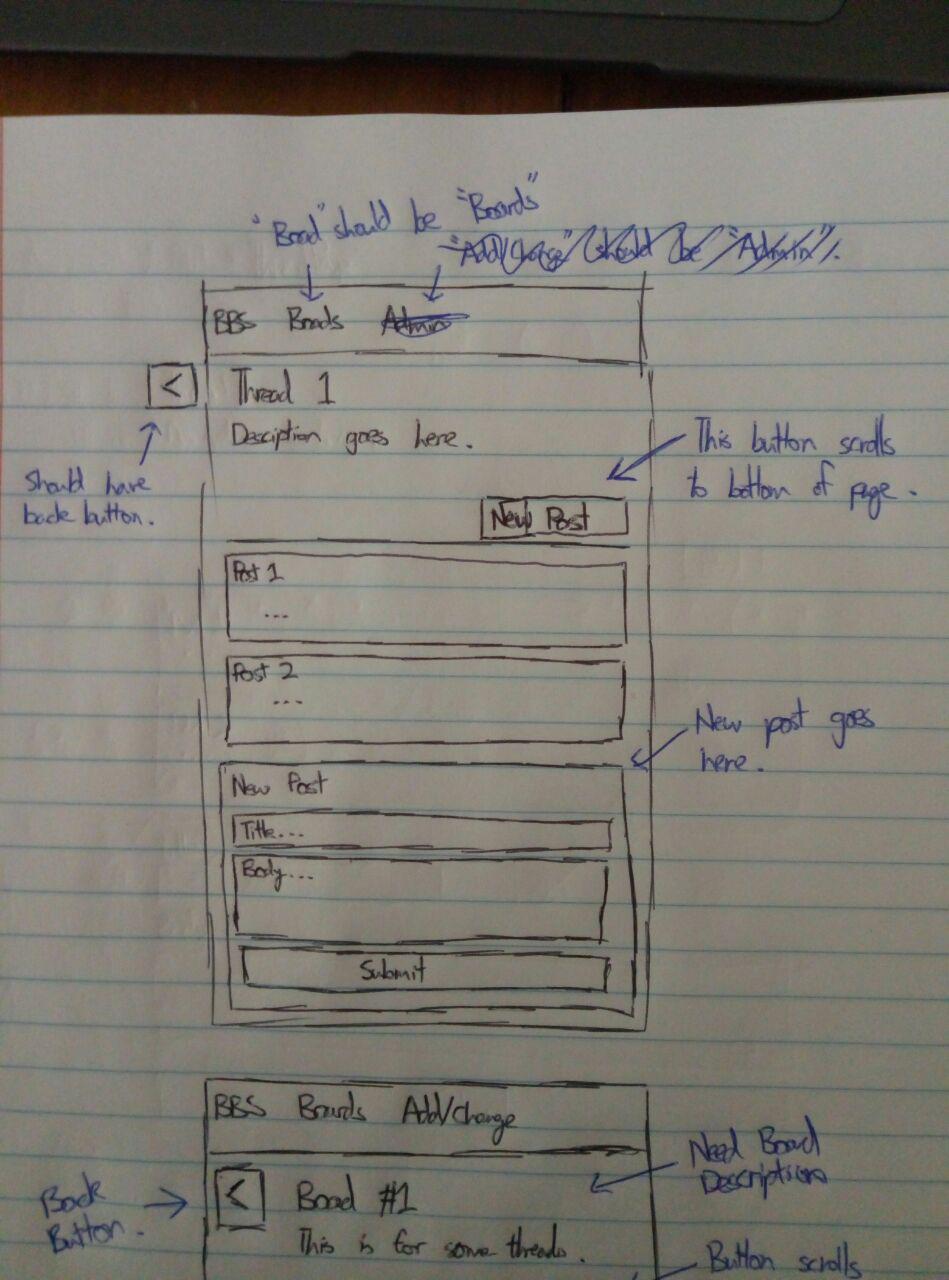 "Board" should be "Boards"
"Add/Change" should be "Admin".
BBS Boards Admin
<
Thread 1
Desciption goes here.
Should have
back button.
This button scrolls
to bottom of page.
New Post
Post 1
...
Post 2
...
New post goes
here.
New Post
Title...
Body...
Submit
BBS Boards Add/Change
Need Board
Description
Back
Button.
<
Board #1
This is for some threads.
Button scrolls